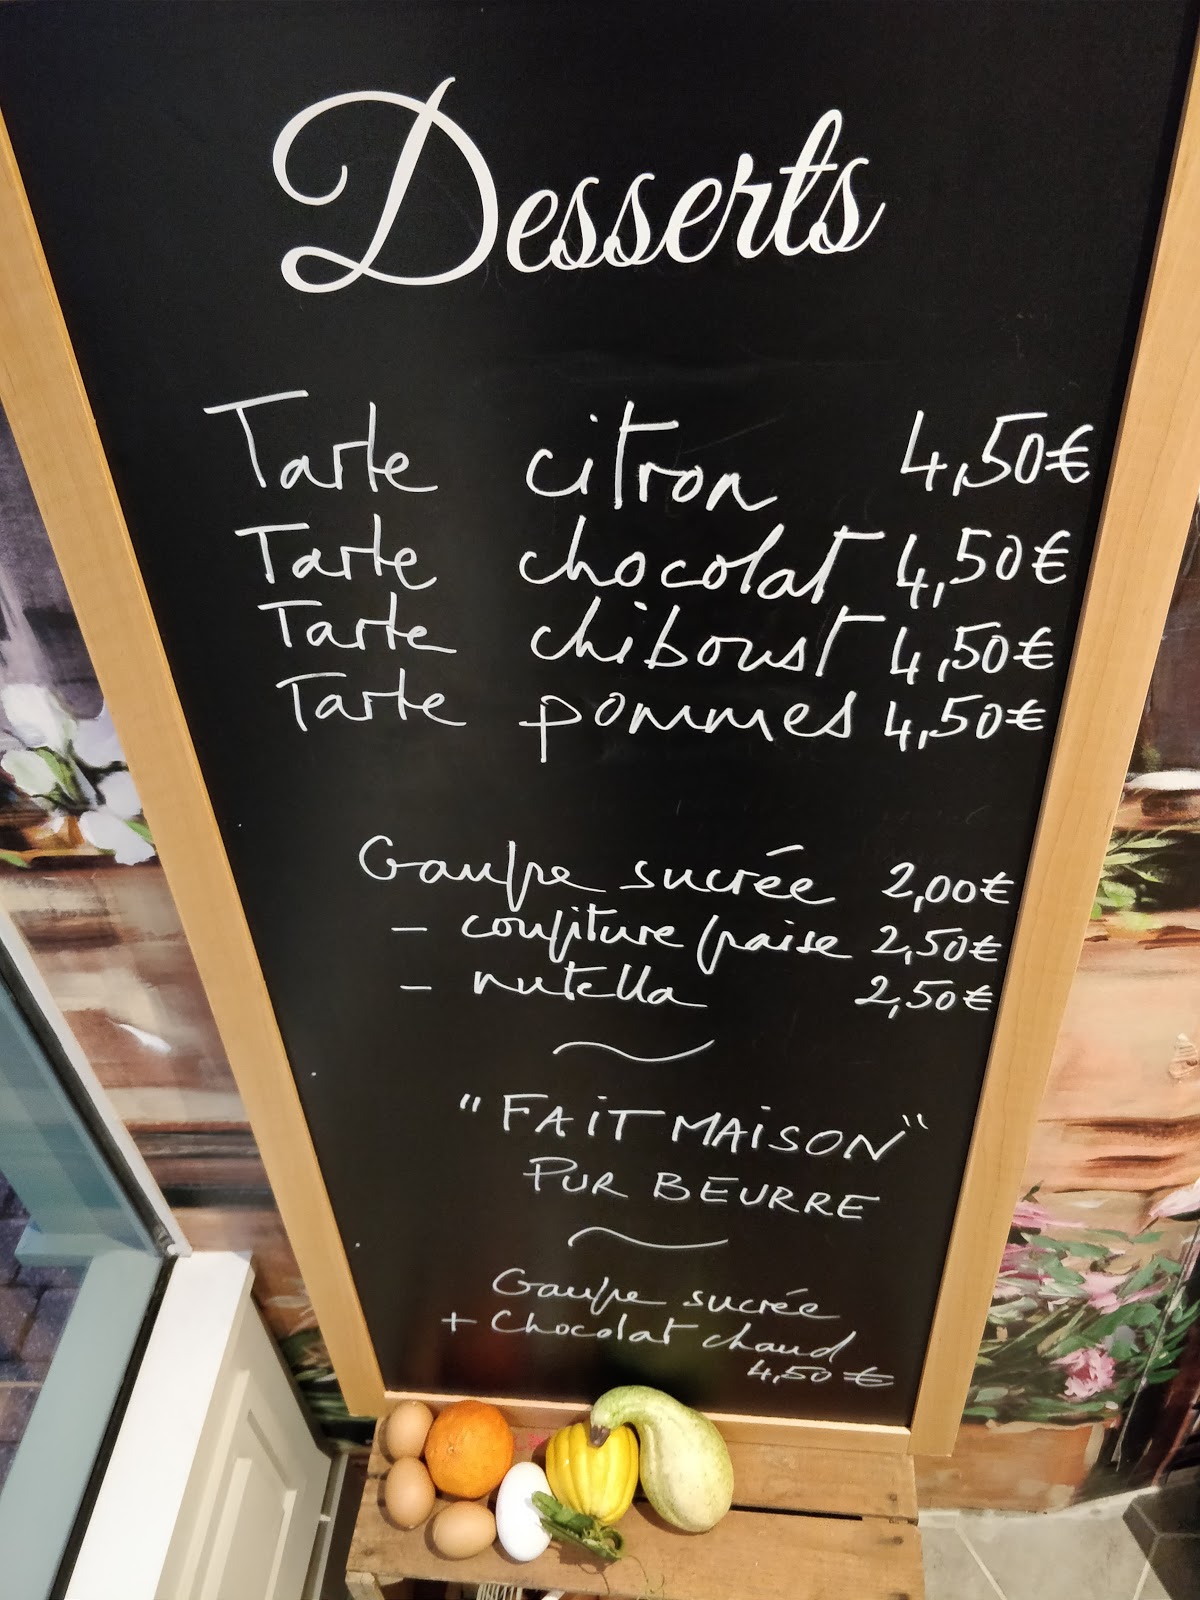 Desserts
Tarte citron 4,50€
Tarte chocolat 4,50€
Tarte chiboust 4,50€
Tarte pommes 4,50€
Gaufre sucrée 2,00€
- confiture fraise 2,50€
- nutella 2,50€
"FAiT MAiSON"
PUR BEURRE
Gaufre sucrée
+ Chocolat chaud
4,50€